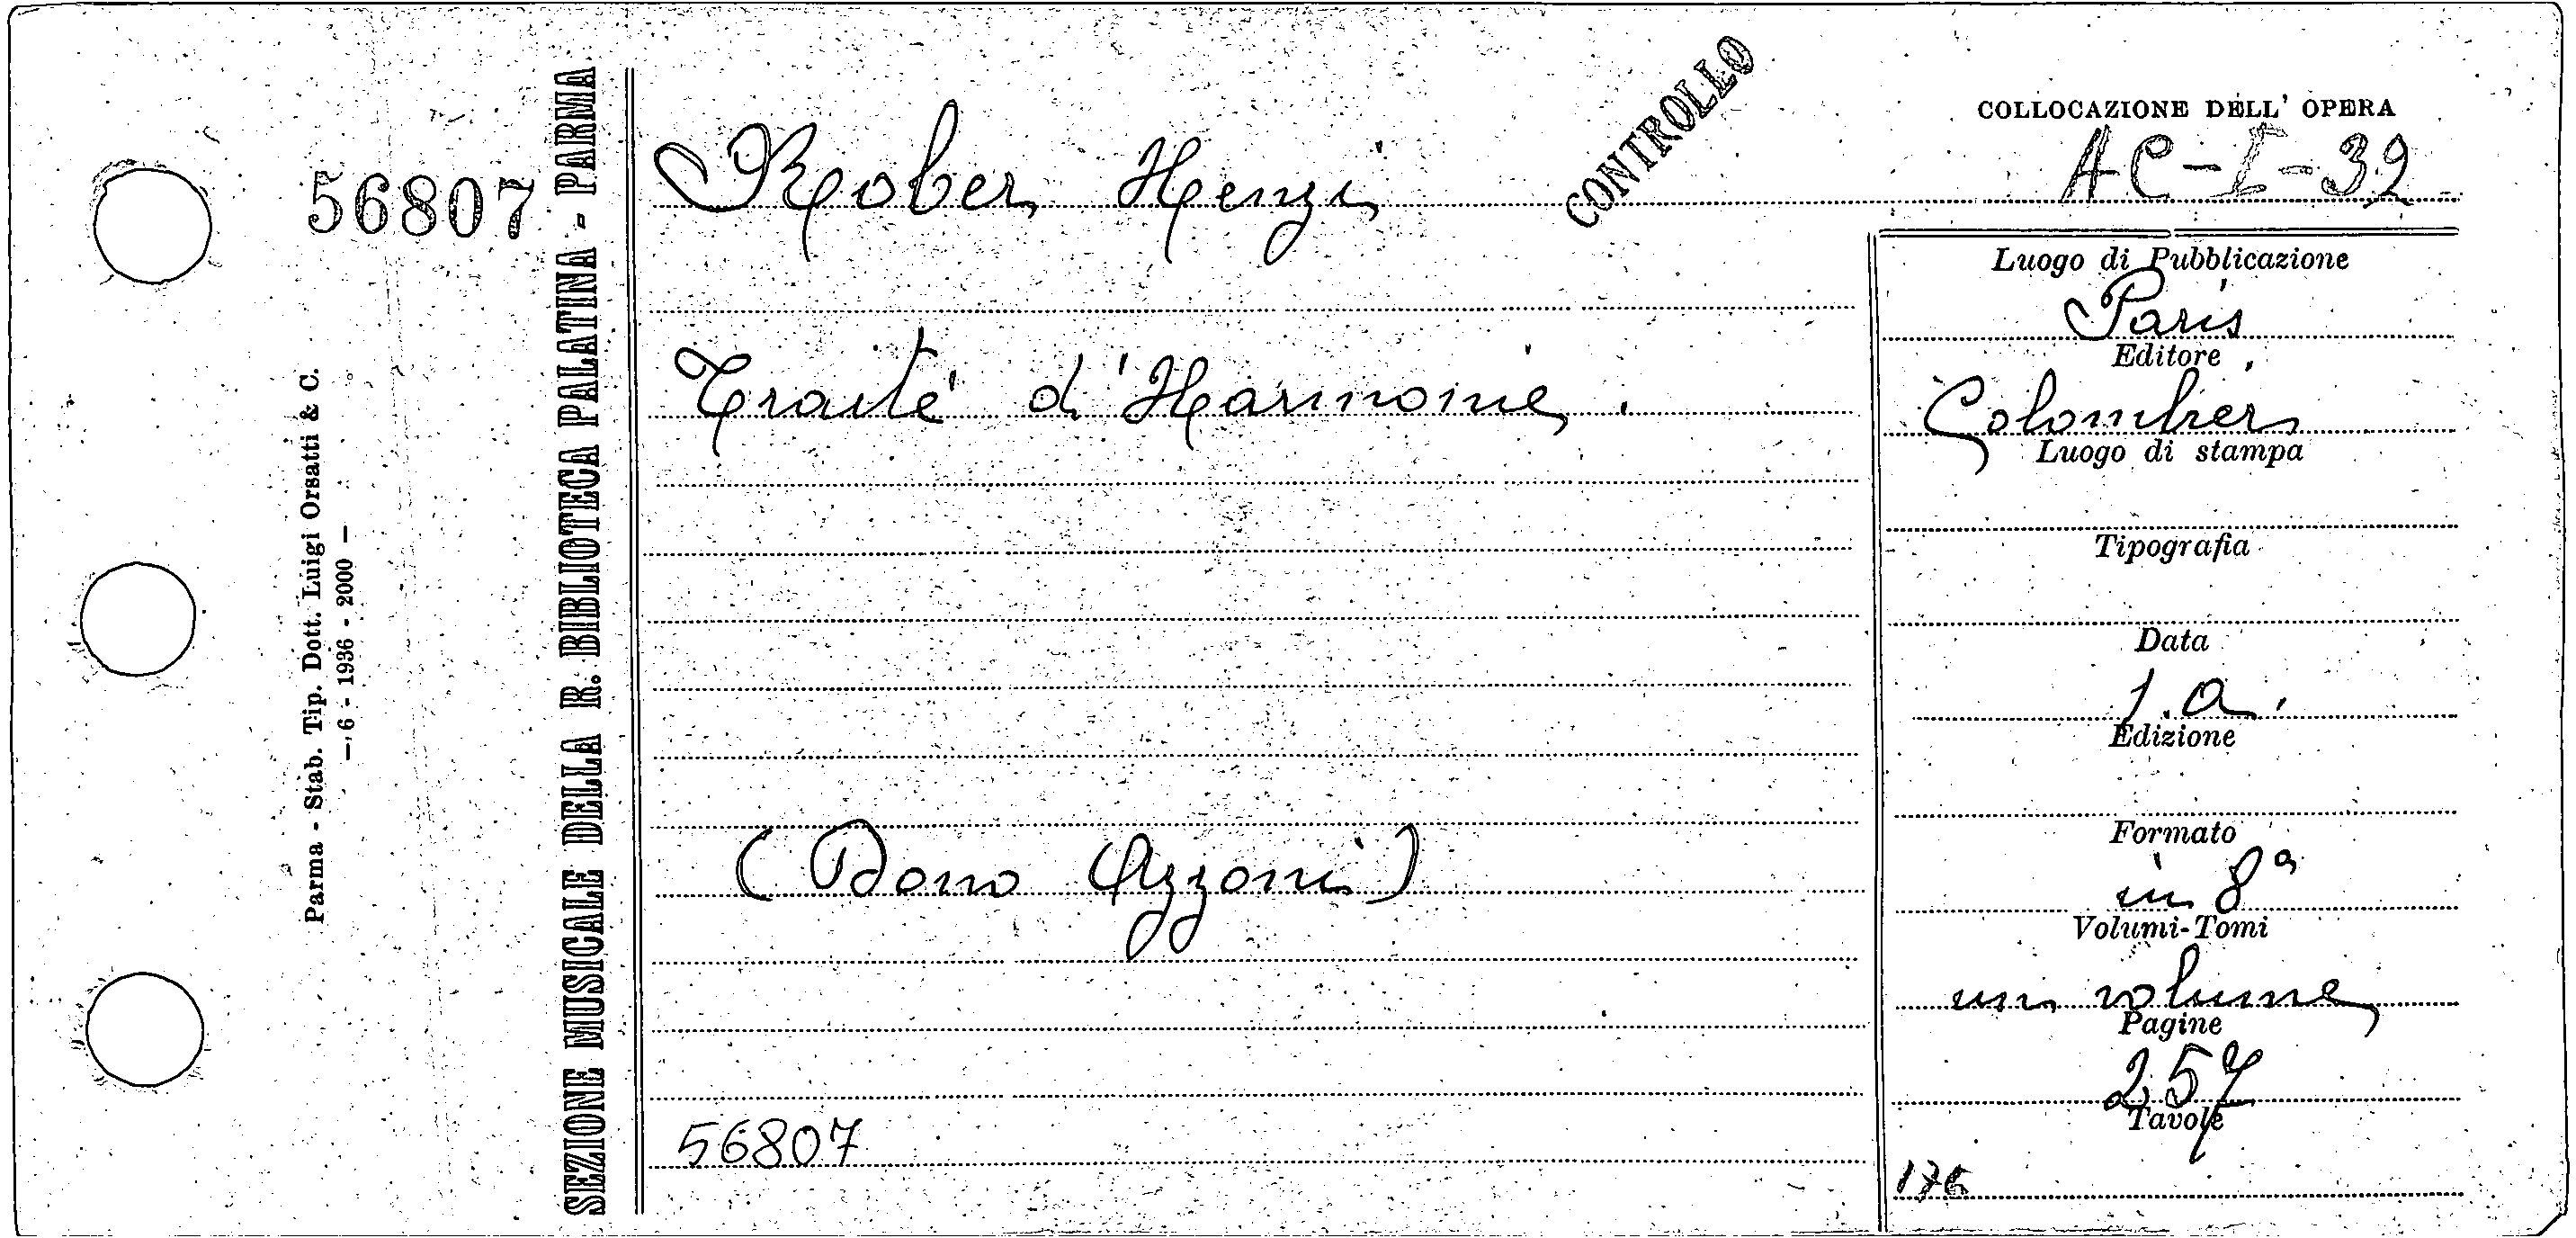 56807
Parma - Stab. Tip. Dott. Luigi Orsatti & C.
— 6 - 1936 - 2000 —
SEZIONE MUSICALE DELLA R. BIBLIOTECA PALATINA - PARMA
Rober Henzi
CONTROLLO
Traité d'Harmonie.
(Dono Azzoni)
56807
COLLOCAZIONE DELL' OPERA
AC-I-32
Luogo di Pubblicazione
Paris
Editore
Colombier
Luogo di stampa
Tipografia
Data
s.a.
Edizione
Formato
in 8°
Volumi-Tomi
un volume
Pagine
257
Tavole
176